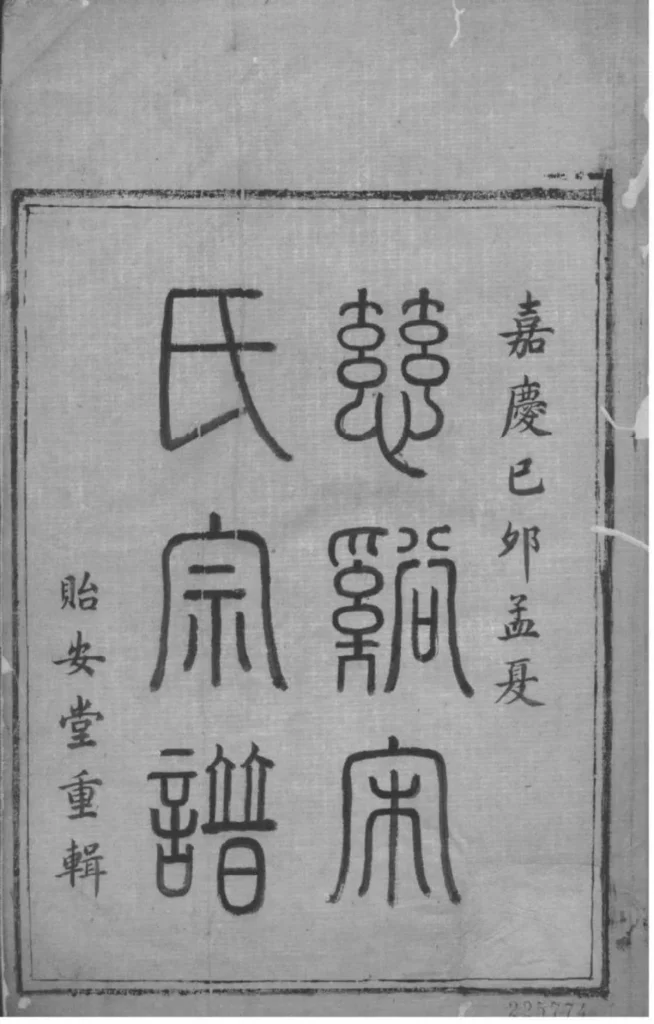 嘉慶己卯孟夏
慈谿宋
氏宗譜
貽安堂重輯
225774